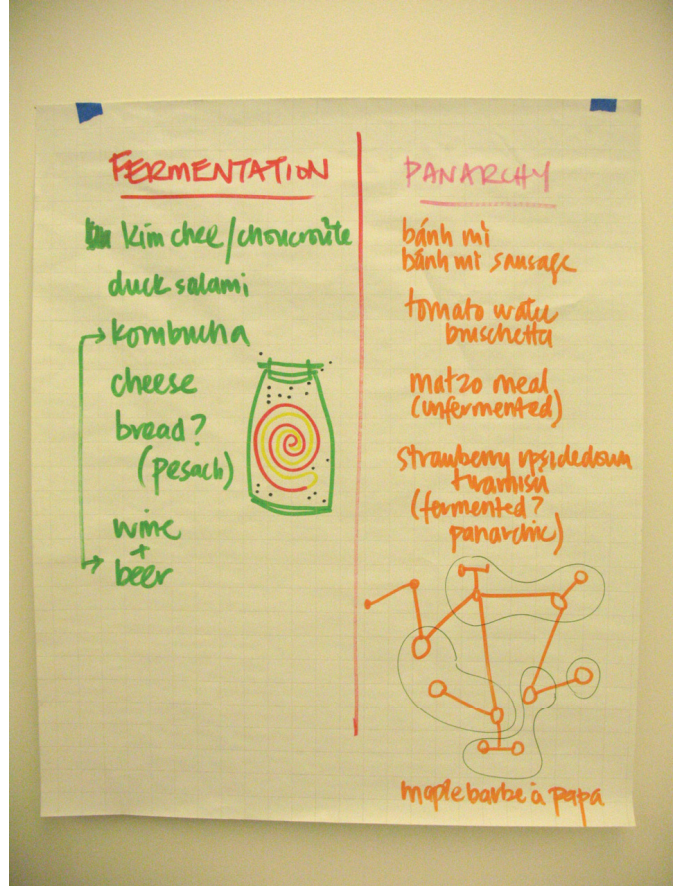 FERMENTATION
kim chee/choucroûte
duck salami
kombucha
cheese
bread?
(pesach)
wine
+
beer
PANARCHY
bánh mì
bánh mì sausage
tomato water
bruschetta
matzo meal
(unfermented)
strawberry upsidedown
tiramisu
(fermented?
panarchic)
maple barbe à papa